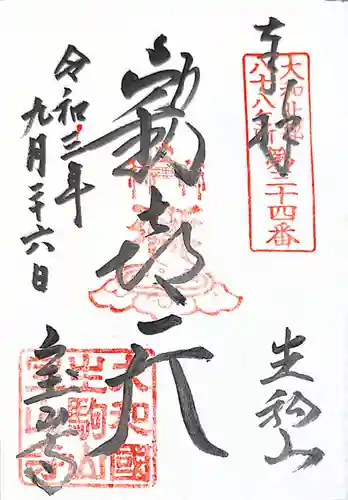 奉拝
大和北部
八十八ヶ所第三十四番
生駒山
歓喜天
令和三年
九月二十六日
宝山寺
大和國
生駒山
宝山寺